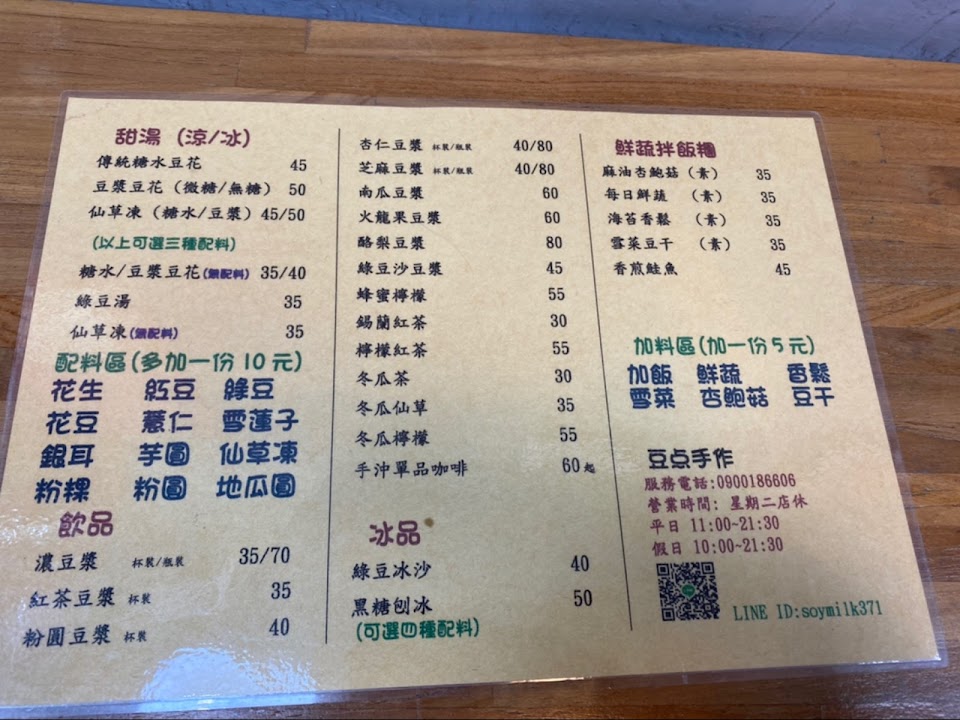 甜湯 (涼/冰)
傳統糖水豆花 45
豆漿豆花 (微糖/無糖) 50
仙草凍 (糖水/豆漿) 45/50
(以上可選三種配料)
糖水/豆漿豆花(無配料) 35/40
綠豆湯 35
仙草凍(無配料) 35
配料區(多加一份10元)
花生 紅豆 綠豆
花豆 薏仁 雪蓮子
銀耳 芋圓 仙草凍
粉粿 粉圓 地瓜圓
飲品
濃豆漿 杯裝/瓶裝 35/70
紅茶豆漿 杯裝 35
粉圓豆漿 杯裝 40
杏仁豆漿 杯裝/瓶裝 40/80
芝麻豆漿 杯裝/瓶裝 40/80
南瓜豆漿 60
火龍果豆漿 60
酪梨豆漿 80
綠豆沙豆漿 45
蜂蜜檸檬 55
錫蘭紅茶 30
檸檬紅茶 55
冬瓜茶 30
冬瓜仙草 35
冬瓜檸檬 55
手沖單品咖啡 60起
冰品
綠豆冰沙 40
黑糖刨冰 50
(可選四種配料)
鮮蔬拌飯糰
麻油杏鮑菇 (素) 35
每日鮮蔬 (素) 35
海苔香鬆 (素) 35
雪菜豆干 (素) 35
香煎鮭魚 45
加料區(加一份5元)
加飯 鮮蔬 香鬆
雪菜 杏鮑菇 豆干
豆点手作
服務電話:0900186606
營業時間: 星期二店休
平日 11:00~21:30
假日 10:00~21:30
LINE ID:soymilk371